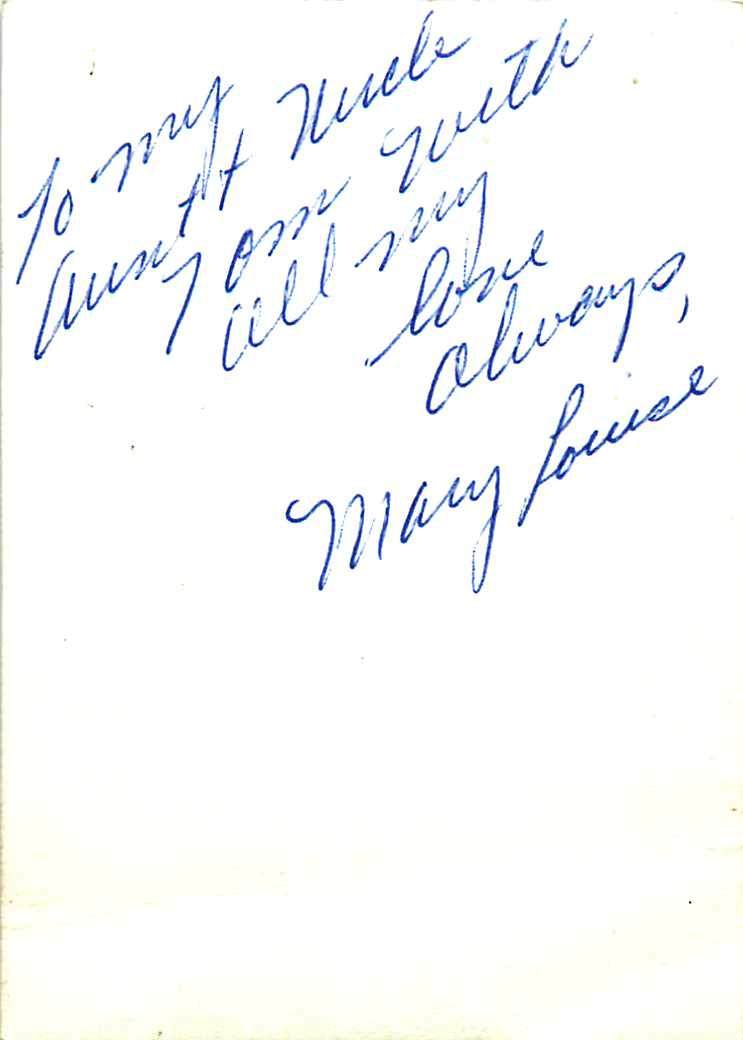 To my
Aunt + Uncle
Tom with
all my
love
always,
Mary Louise